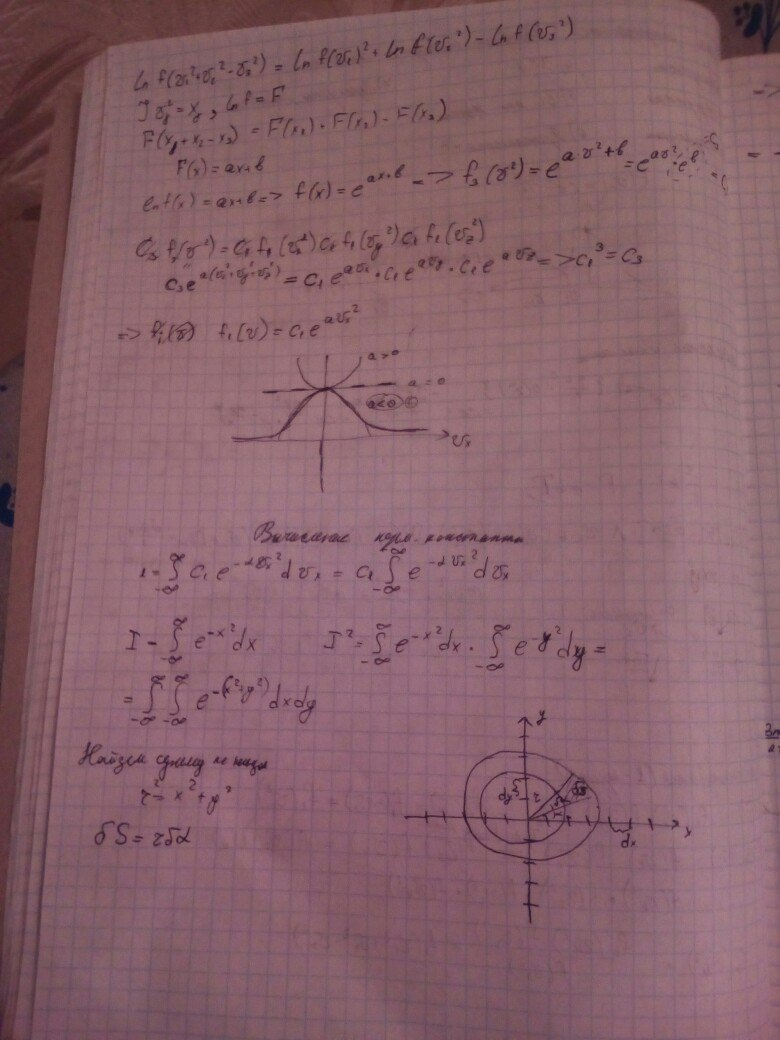 ln f(v₁²+v₂²-v₃²) = ln f(v₁)² + ln f(v₂²) - ln f(v₃²)
ln f = F
F(x₁+x₂-x₃) = F(x₁) + F(x₂) - F(x₃)
F(x) = ax+b
ln f(x) = ax+b => f(x) = e^{ax+b} => f₃(v²) = e^{a·v²+b} = e^{av²}·e^b
C₃ f₃(v²) = C₁ f₁(vₓ²) C₁ f₁(v_y²) C₁ f₁(v_z²)
C₃e^{a(vₓ²+v_y²+v_z²)} = C₁ e^{avₓ} · C₁ e^{av_y} · C₁ e^{av_z} => C₁³ = C₃
=> f₁(v) = C₁e^{avₓ²}
a>0
a=0
a<0
vₓ
Вычисление норм. константы
1 = ∫_{-∞}^{∞} C₁ e^{-αvₓ²} dvₓ = C₁ ∫_{-∞}^{∞} e^{-αvₓ²} dvₓ
I = ∫_{-∞}^{∞} e^{-x²}dx I² = ∫_{-∞}^{∞} e^{-x²}dx · ∫_{-∞}^{∞} e^{-y²}dy =
= ∫_{-∞}^{∞} ∫_{-∞}^{∞} e^{-(x²+y²)} dxdy
Найдем сумму по
r² = x²+y²
δS = rδα
y
dy
r
x
dx